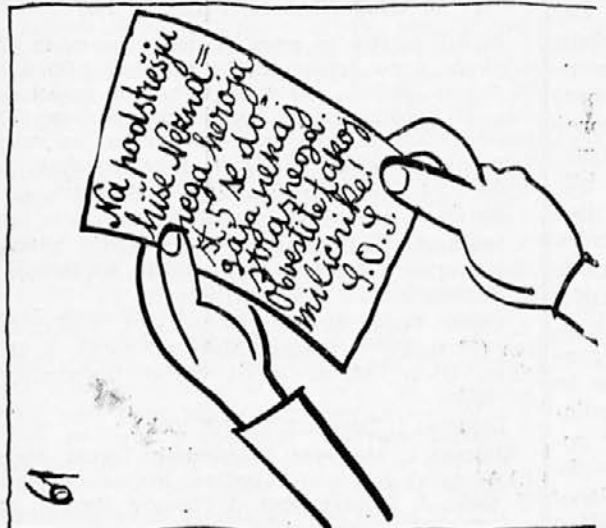 Na podstrešju
hiše Nezna=
nega heroja
št. 5 se do=
gaja nekaj
strašnega.
Obvestite takoj
miličnike!
S.O.S.
61